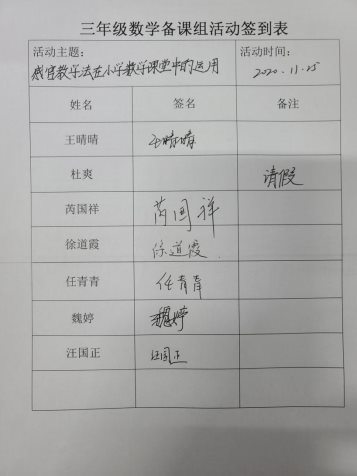 三年级数学备课组活动签到表
活动主题： 活动时间：
感官教学法在小学数学课堂中的运用 2020.11.25
姓名 签名 备注
王晴晴 王晴晴
杜爽 请假
芮国祥 芮国祥
徐道霞 徐道霞
任青青 任青青
魏婷 魏婷
汪国正 汪国正